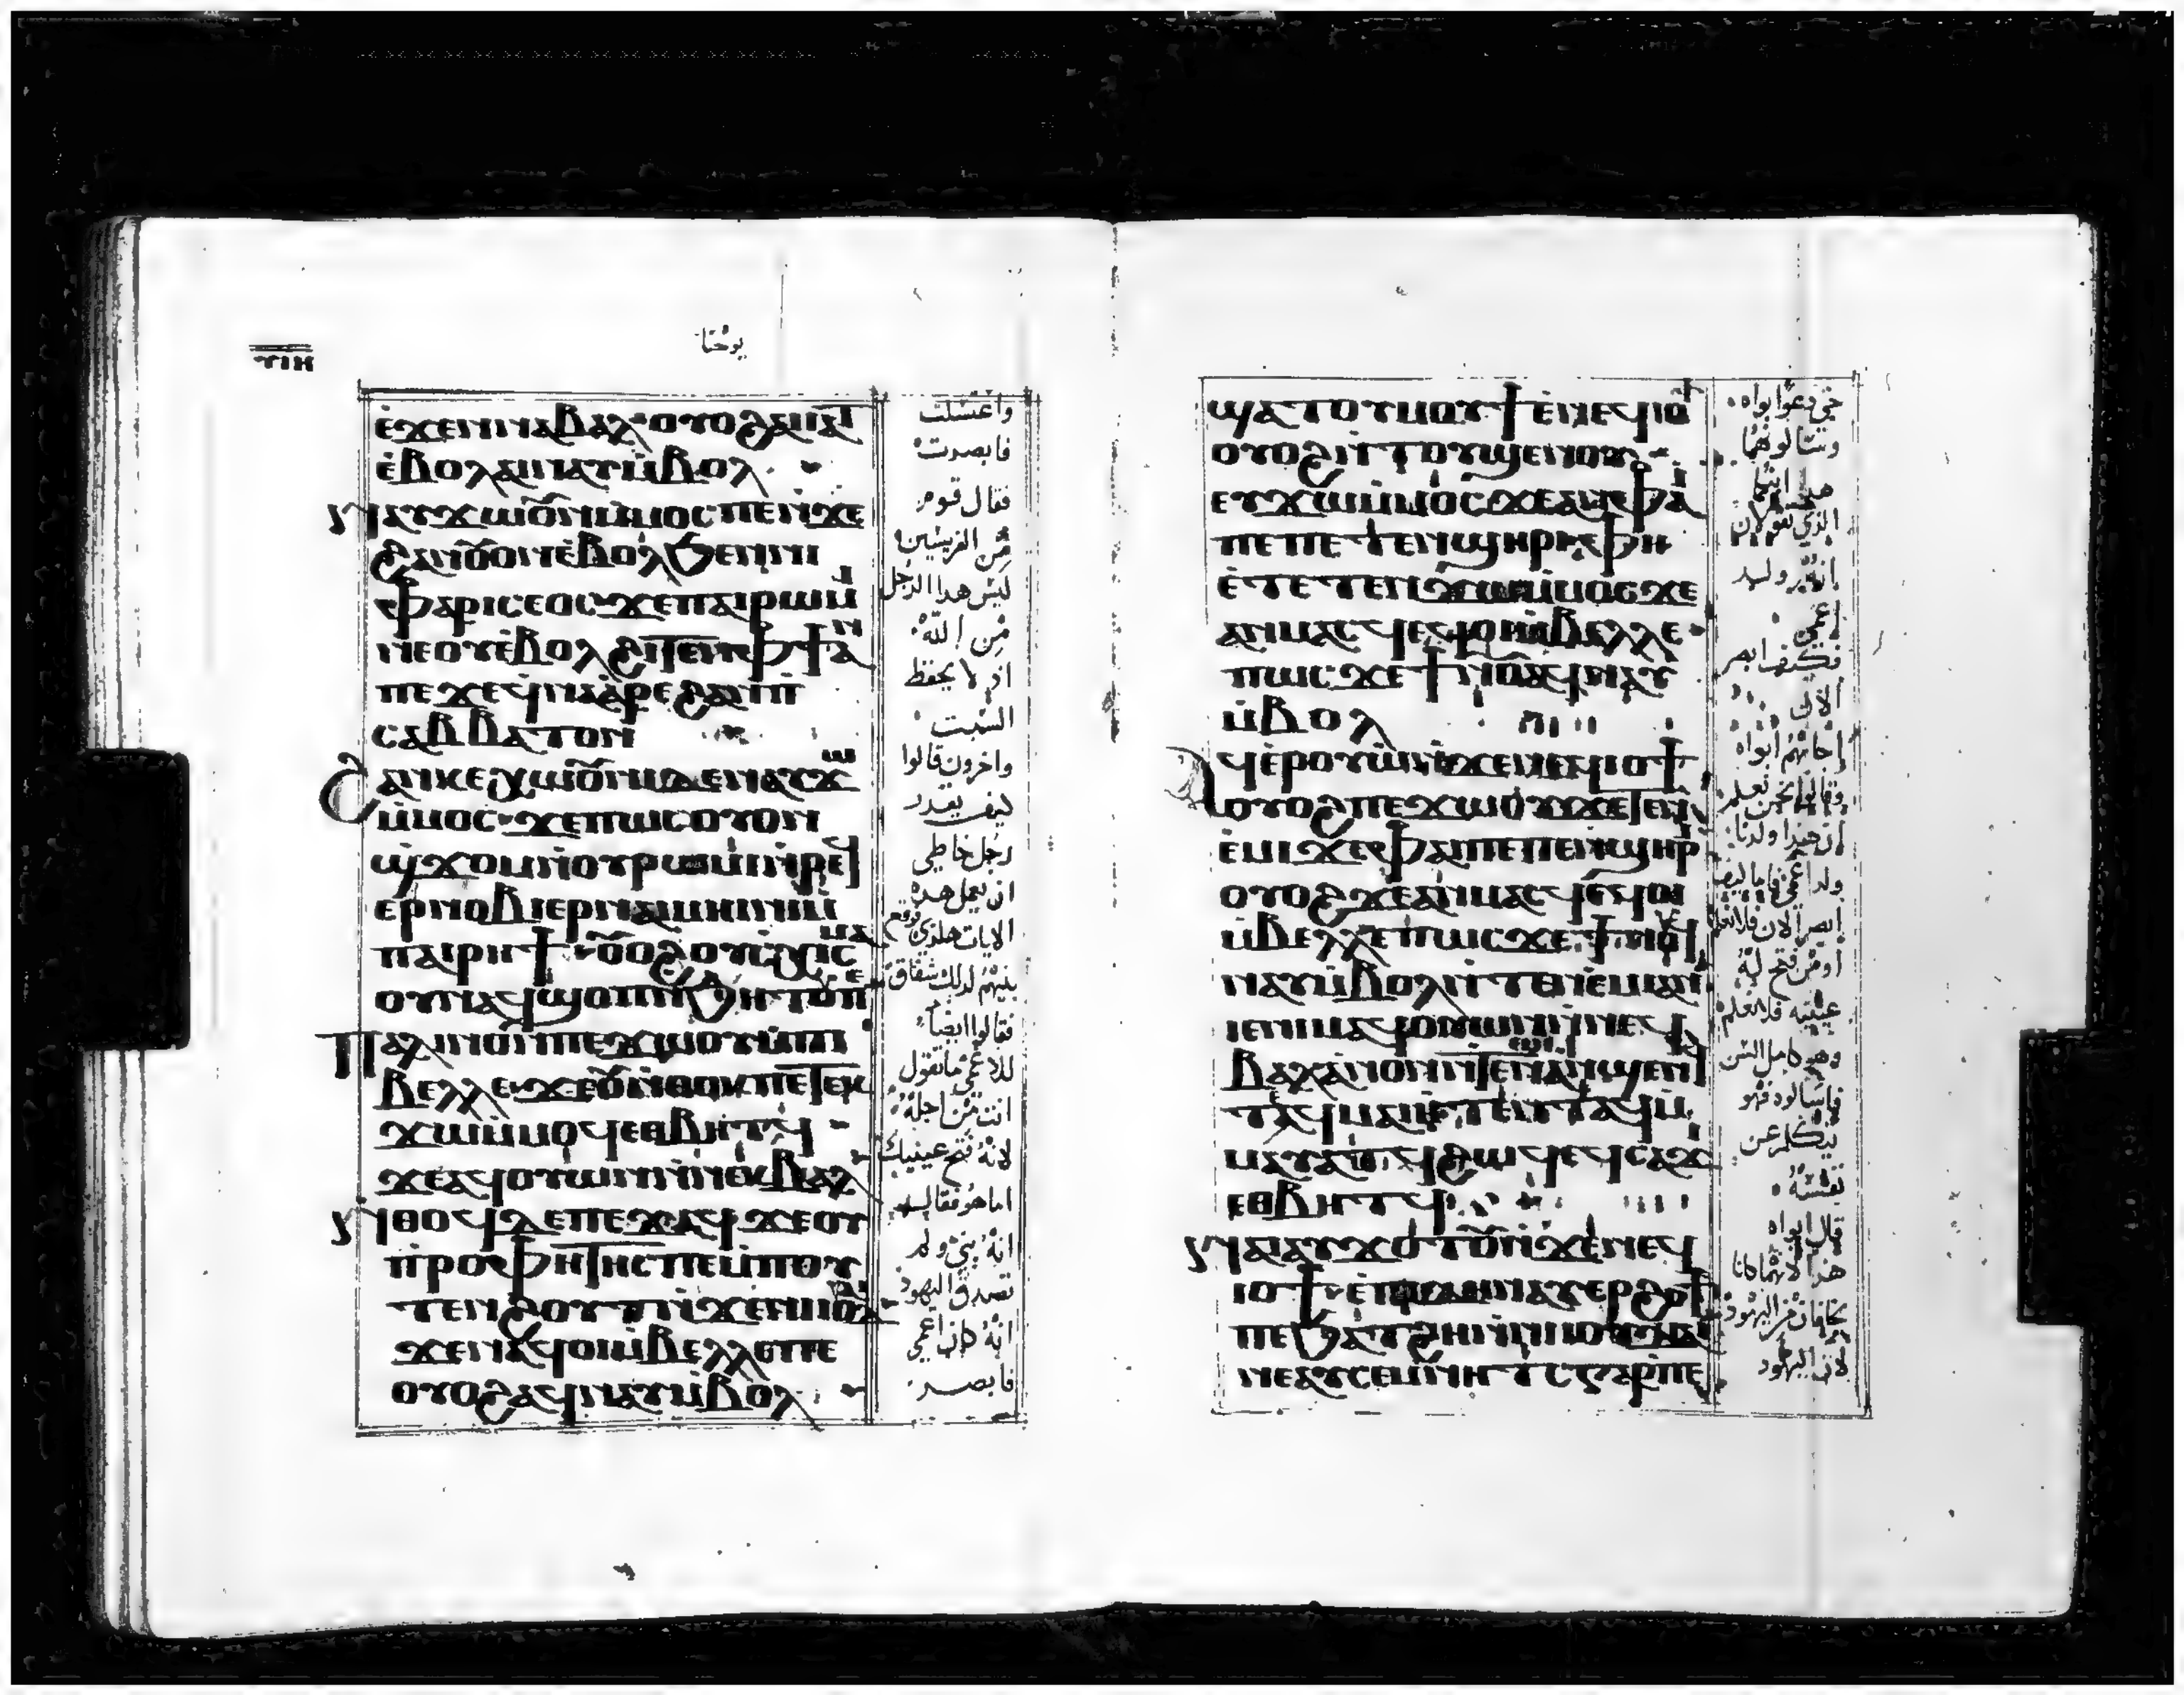 ⲧⲓⲏ
يوحنا
ⲉ̀ϫⲉⲛⲛⲁⲃⲁⲗ ⲟⲩⲟϩⲁⲓⲓⲁⲧ
ⲉ̀ⲃⲟⲗⲁⲓⲛⲁⲩⲙ̀ⲃⲟⲗ
ⲛⲁⲩϫⲱⲟⲩⲛⲙ̀ⲙⲟⲥⲡⲉⲛ̀ϫⲉ
ϩⲁⲛⲟⲩⲟⲛⲉ̀ⲃⲟⲗϧⲉⲛⲛⲓ
ⲫⲁⲣⲓⲥⲉⲟⲥϫⲉⲡⲁⲓⲣⲱⲙⲓ
ⲛⲉⲟⲩⲉ̀ⲃⲟⲗϩⲓⲧⲉⲛⲫϯⲁⲛ
ⲡⲉϫⲉϥⲛ̀ⲁ̀ⲣⲉϩⲁⲛⲡⲓ
ⲥⲁⲃⲃⲁⲧⲟⲛ
ϩⲁⲛⲕⲉⲭⲱⲟⲩⲛⲓⲇⲉⲛⲁⲩϫⲱ
ⲙ̀ⲙⲟⲥ ϫⲉⲡⲱⲥⲟⲩⲟⲛ
ϣϫⲟⲙⲛ̀ⲟⲩⲣⲱⲙⲓⲛ̀ⲣⲉϥ
ⲉⲣⲛⲟⲃⲓⲉⲣⲛⲁⲓⲙⲏⲓⲛⲓ
ⲡⲁⲓⲣⲏϯ ⲟⲩⲟϩⲟⲩⲛ̀ⲥⲭⲓⲥⲙⲁ
ⲟⲩⲛⲁϥϣⲟⲡⲛ̀ϧⲏⲧⲟⲩⲡⲉ
ⲡⲁⲗⲓⲛⲟⲛⲡⲉϫⲱⲟⲩⲙ̀ⲡⲓ
ⲃⲉⲗⲗⲉ ϫⲉⲟⲩⲛ̀ⲑⲟⲕⲡⲉⲧⲉⲕ
ϫⲱⲙ̀ⲙⲟϥⲉⲑⲃⲏⲧϥ
ϫⲉⲁϥⲟⲩⲱⲛⲛ̀ⲛⲉⲕⲃⲁⲗ
ⲛ̀ⲑⲟϥⲇⲉⲡⲉϫⲁϥ ϫⲉⲟⲩ
ⲡ̀ⲣⲟⲫⲏⲧⲏⲥⲡⲉⲙ̀ⲡⲟⲩ
ⲧⲉⲛϩⲟⲩⲧϥⲛ̀ϫⲉⲛⲓⲓⲟⲩⲇⲁⲓ
ϫⲉⲛⲁϥⲟⲓⲙ̀ⲃⲉⲗⲗⲉⲡⲉ
ⲟⲩⲟϩⲁϥⲛⲁⲩⲙ̀ⲃⲟⲗ
واغتسلت
فابصرت
فقال قوم
من الفريسين
ليس هدا الرجل
من الله
اذ لا يحفظ
السبت
واخرون قالوا
كيف يقدر
رجل خاطي
ان يعمل هده
الايات هكذي فوقع
بينهم لدلك شقاق
فقالوا ايضا
للاعمي ما تقول
انت من اجله
لانه فتح عينيك
اما هو فقال لهم
انه نبي ولم
تصدق اليهود
انه كان اعمي
فابصر
ϣⲁⲧⲟⲩⲙⲟⲩϯⲉ̀ⲛⲉϥⲓⲟϯ
ⲟⲩⲟϩⲛ̀ⲧⲟⲩϣⲉⲛⲟⲩ
ⲉⲩϫⲱⲙ̀ⲙⲟⲥϫⲉⲁⲛⲫⲁⲓ
ⲡⲉⲡⲉⲧⲉⲛϣⲏⲣⲓⲫⲏ
ⲉ̀ⲧⲉⲧⲉⲛϫⲱⲙ̀ⲙⲟⲥϫⲉ
ⲁⲛⲙⲁⲥϥⲉϥⲟⲓⲙ̀ⲃⲉⲗⲗⲉ
ⲡⲱⲥ ϫⲉϯⲛⲟⲩϥⲛⲁⲩ
ⲙ̀ⲃⲟⲗ
ⲁϥⲉⲣⲟⲩⲱⲛ̀ϫⲉⲛⲉϥⲓⲟϯ
ⲟⲩⲟϩⲡⲉϫⲱⲟⲩϫⲉⲧⲉⲛ
ⲉ̀ⲙⲓϫⲉⲫⲁⲓⲡⲉⲡⲉⲛϣⲏⲣⲓ
ⲟⲩⲟϩϫⲉⲁⲛⲙⲁⲥϥⲉϥⲟⲓ
ⲙ̀ⲃⲉⲗⲗⲉⲡⲱⲥϫⲉϯⲛⲟⲩϥ
ⲛⲁⲩⲙ̀ⲃⲟⲗⲛ̀ⲧⲉⲛⲉ̀ⲙⲓⲁⲛ
ⲓⲉⲛⲓⲙⲁϥⲟⲩⲱⲛⲛ̀ⲛⲉϥ
ⲃⲁⲗⲁⲛⲟⲛⲛ̀ⲧⲉⲛⲉⲙⲓⲁⲛϣⲉⲛϥ
ⲧⲁϥⲙⲁⲓⲏⲧⲉⲛⲧⲁϥⲙ̀
ⲙⲁⲩⲁⲧϥϩⲱϥⲉϥⲥⲁϫⲓ
ⲉⲑⲃⲏⲧϥ
ⲛⲁⲓⲁⲩϫⲟⲧⲟⲩⲛ̀ϫⲉⲛⲉϥ
ⲓⲟϯⲉ̀ⲡⲓⲇⲏⲛⲁⲩⲉⲣϩⲟϯ
ⲡⲉϧⲁⲧϩⲏⲛ̀ⲛⲓⲓⲟⲩⲇⲁⲓ
ⲛⲉⲁⲩⲥⲉⲙⲛⲏⲧⲥⲅⲁⲣⲡⲉ
حتي دعوا ابواه
وسالوهما
الذي تقولان
انه ولد
اعمي
فكيف ابصر
الان
اجابهم ابواه
وقالا نحن نعلم
ان هدا ولدنا
ابصر الان فلا نعلم
او من فتح له
عينيه فلا نعلم
وهو كامل السن
فاسالوه فهو
يتكلم عن
نفسه
قال ابواه
هدا لانهما كانا
يخافان من اليهود
لان اليهود